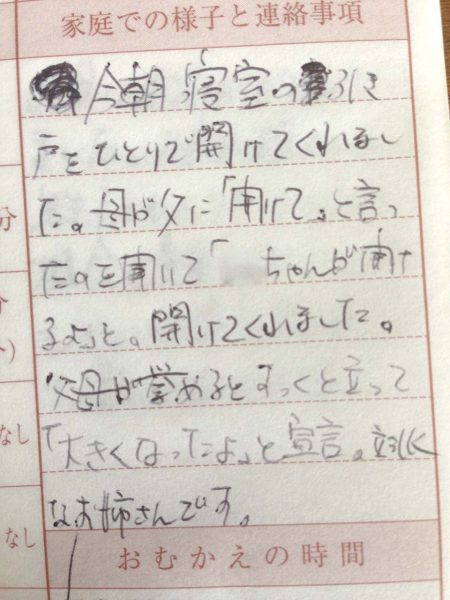 家庭での様子と連絡事項
今朝 寝室の引き
戸をひとりで開けてくれまし
た。母が父に「開けて」と言っ
たのを聞いて「 ちゃんが開け
るよ」と。開けてくれました。
父母が誉めるとすっくと立って
「大きくなったよ」と宣言。立派
なお姉さんです。
分
なし
なし
おむかえの時間